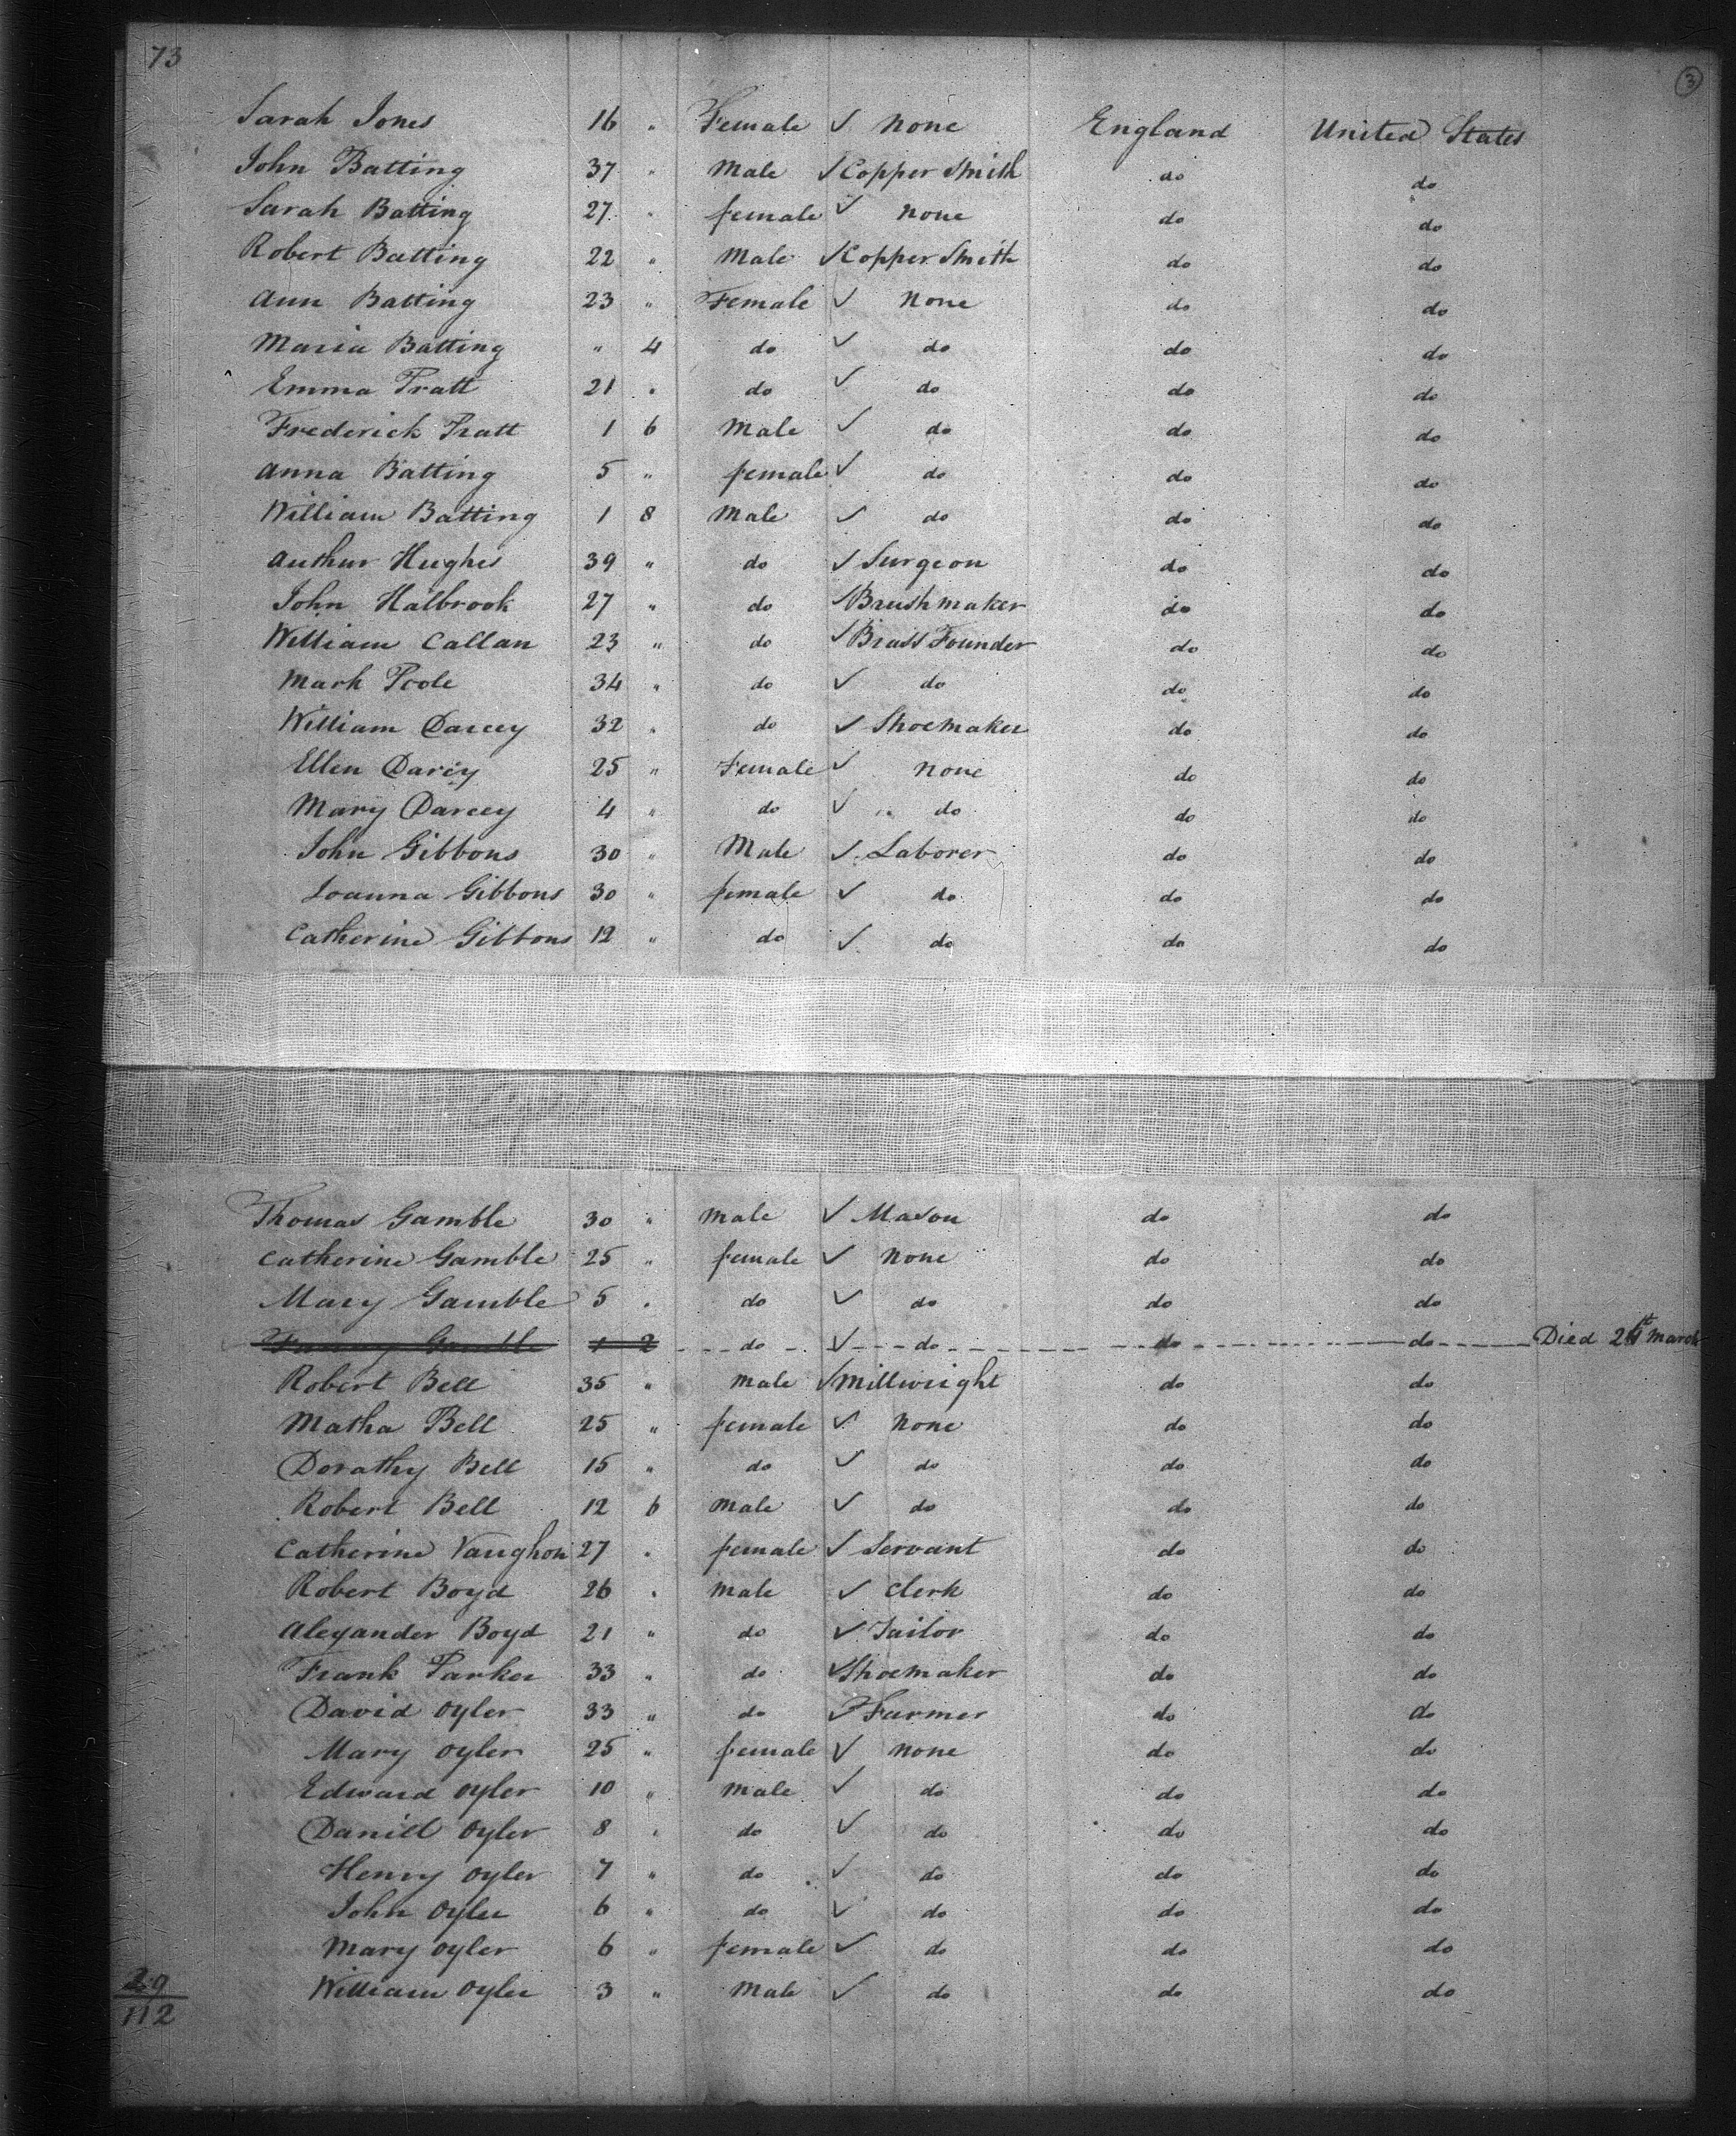 73
3
Sarah Jones 16 " Female ✓ none England United States
John Batting 37 " Male ✓ Copper Smith do do
Sarah Batting 27 " female ✓ none do do
Robert Batting 22 " Male ✓ Copper Smith do do
Ann Batting 23 " Female ✓ None do do
Maria Batting " 4 do ✓ do do do
Emma Pratt 21 " do ✓ do do do
Frederick Pratt 1 6 Male ✓ do do do
Anna Batting 5 " female ✓ do do do
William Batting 1 8 Male ✓ do do do
Authur Hughes 39 " do ✓ Surgeon do do
John Halbrook 27 " do ✓ Brushmaker do do
William Callan 23 " do ✓ Brass Founder do do
Mark Poole 34 " do ✓ do do do
William Darcey 32 " do ✓ Shoemaker do do
Ellen Darcy 25 " Female ✓ None do do
Mary Darcey 4 " do ✓ " do do do
John Gibbons 30 " Male ✓ Laborer do do
Joanna Gibbons 30 " female ✓ do do do
Catherine Gibbons 12 " do ✓ do do do
Thomas Gamble 30 " male ✓ Mason do do
Catherine Gamble 25 " female ✓ None do do
Mary Gamble 5 " do ✓ do do do
Gamble 1 2 do ✓ do do do Died March
Robert Bell 35 " male ✓ Millwright do do
Matha Bell 25 " female ✓ None do do
Dorathy Bell 15 " do ✓ do do do
Robert Bell 12 6 Male ✓ do do do
Catherine Vaughon 27 " female ✓ Servant do do
Robert Boyd 26 " Male ✓ Clerk do do
Alexander Boyd 21 " do ✓ Tailor do do
Frank Parker 33 " do ✓ Shoemaker do do
David Oyler 33 " do ✓ Farmer do do
Mary Oyler 25 " female ✓ none do do
Edward Oyler 10 " male ✓ do do do
Daniel Oyler 8 " do ✓ do do do
Henry Oyler 7 " do ✓ do do do
John Oyler 6 " do ✓ do do do
Mary Oyler 6 " female ✓ do do do
William Oyler 3 " Male ✓ do do do
112